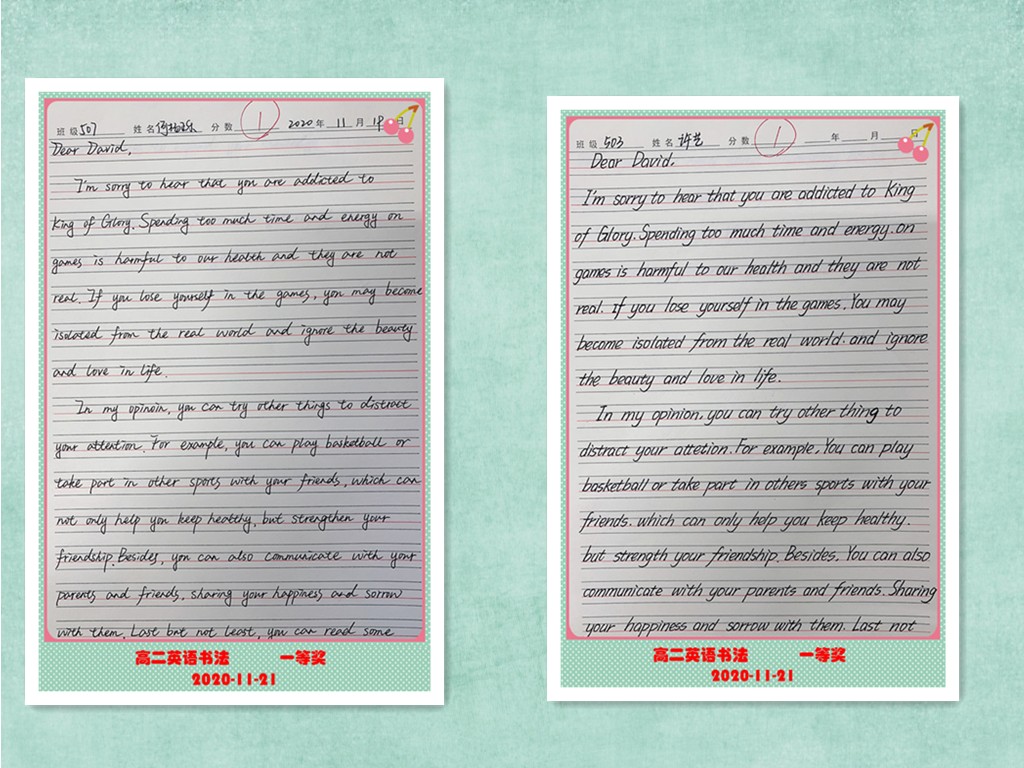 班级 507 姓名 分数 1 2020 年 11 月 19 日
Dear David,
I'm sorry to hear that you are addicted to
King of Glory. Spending too much time and energy on
games is harmful to our health and they are not
real. If you lose yourself in the games, you may become
isolated from the real world and ignore the beauty
and love in life.
In my opinoin, you can try other things to distract
your attention. For example, you can play basketball or
take part in other sports with your friends, which can
not only help you keep healthy, but strengthen your
friendship. Besides, you can also communicate with your
parents and friends, sharing your happiness and sorrow
with them. Last but not least, you can read some
高二英语书法 一等奖
2020-11-21
班级 503 姓名 许艺 分数 1 年 月 日
Dear David,
I'm sorry to hear that you are addicted to King
of Glory. Spending too much time and energy. on
games is harmful to our health and they are not
real. If you lose yourself in the games. You may
become isolated from the real world. and ignore
the beauty and love in life.
In my opinion. you can try other thing to
distract your attetion. For example. You can play
basketball or take part in others sports with your
friends. which can only help you keep healthy.
but strength your friendship. Besides. You can also
communicate with your parents and friends. Sharing
your happiness and sorrow with them. Last not
高二英语书法 一等奖
2020-11-21